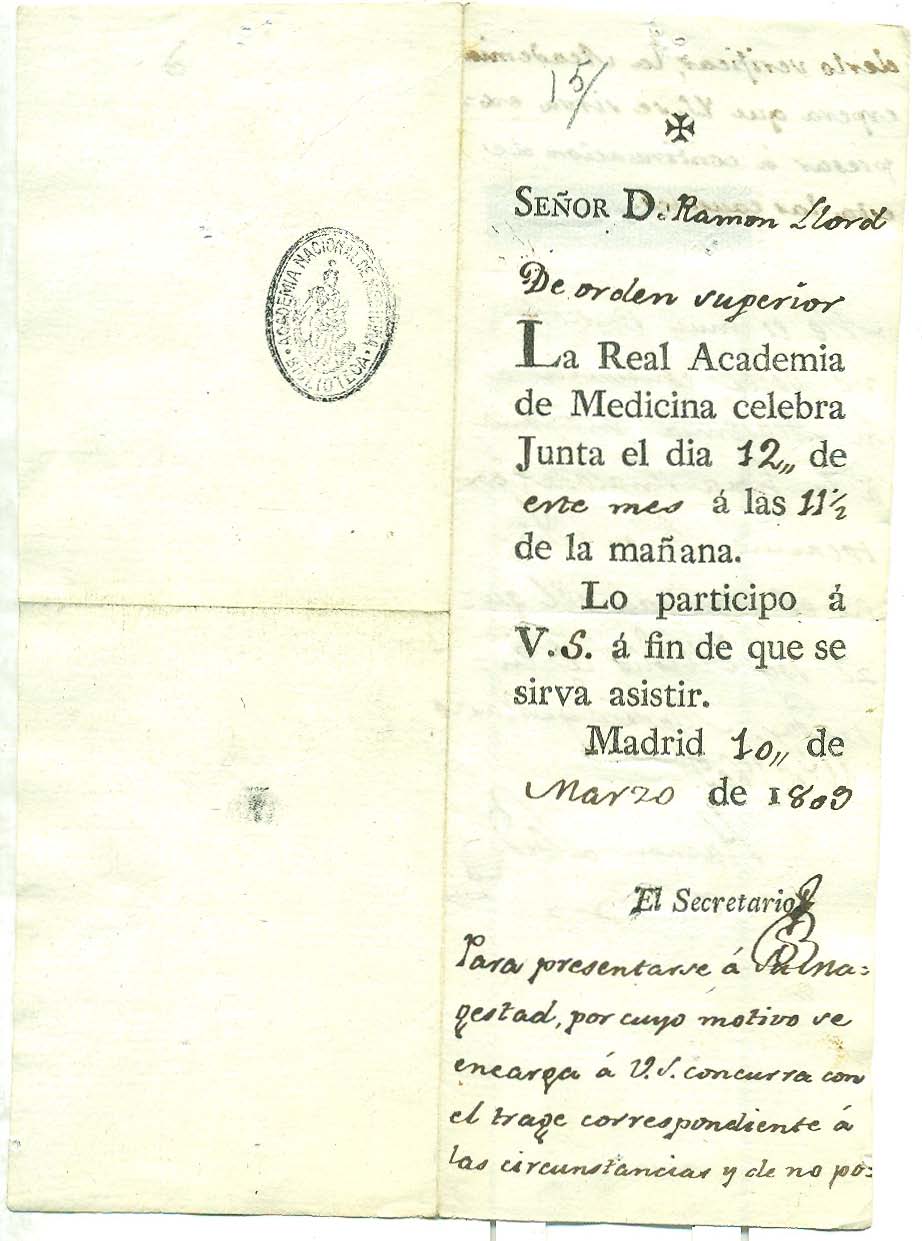 15/
✠
SEÑOR D. Ramon Llord
De orden superior
La Real Academia
de Medicina celebra
Junta el dia 12,, de
este mes á las 11 1/2
de la mañana.
Lo participo á
V. S. á fin de que se
sirva asistir.
Madrid 10,, de
Marzo de 1809
El Secretario
Para presentarse á Su Ma=
gestad, por cuyo motivo se
encarga á V. S. concurra con
el trage correspondiente á
las circunstancias y de no po=
ACADEMIA NACIONAL DE MEDICINA
BIBLIOTECA